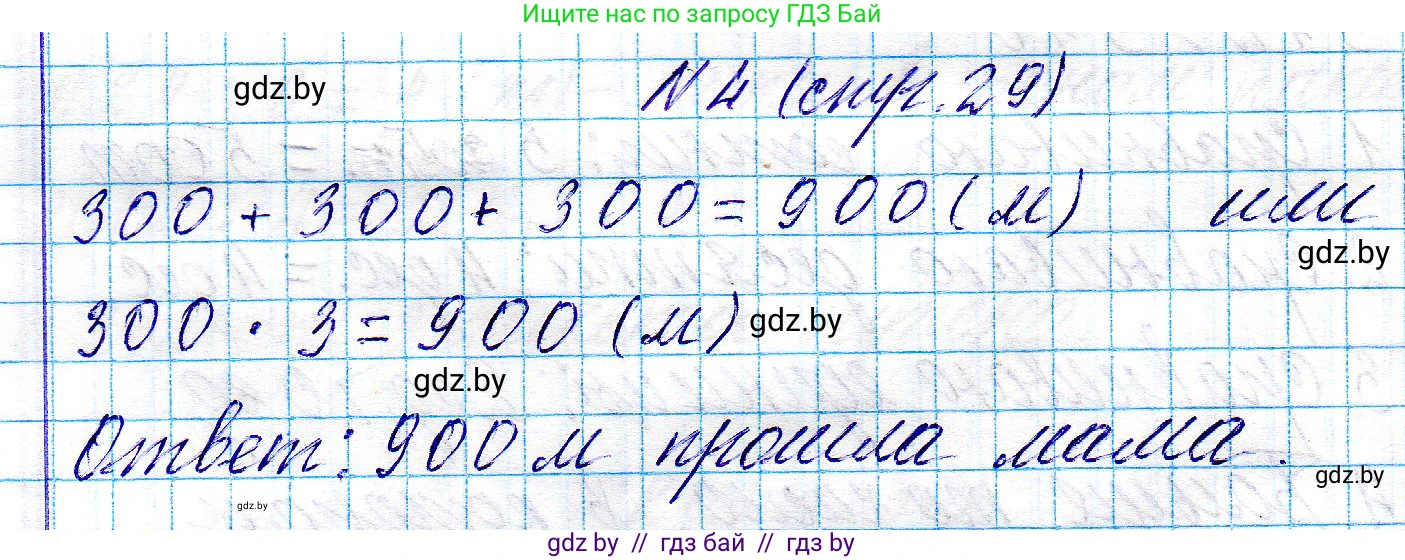 Ищите нас по запросу ГДЗ Бай
gdz.by
N 4 (стр. 29)
300 + 300 + 300 = 900 (м) или
gdz.by
300 · 3 = 900 (м)
gdz.by
gdz.by
Ответ: 900 м прошла мама.
gdz.by
gdz.by
gdz by // гдз бай // гдз by